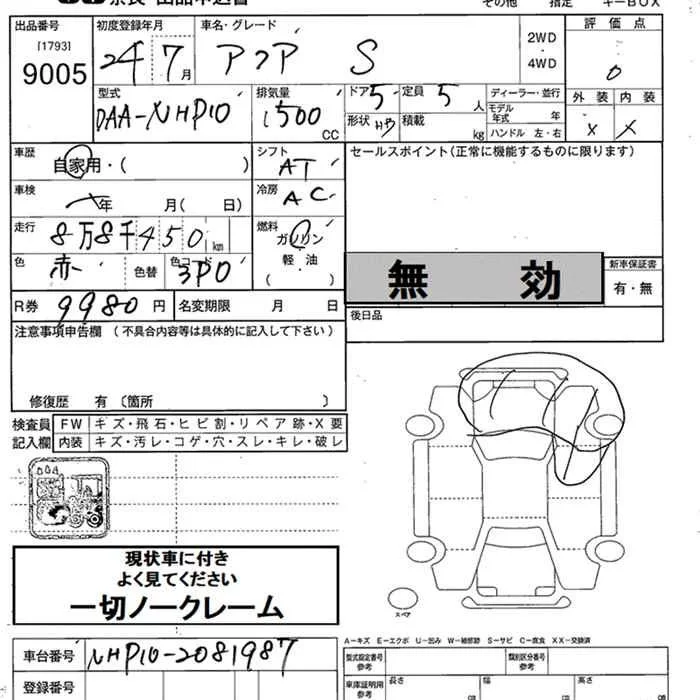 奈良・出品申込書
その他 指定 キーBOX
出品番号 初度登録年月 車名・グレード 評価点
[1793]
9005 24 7月 アクア S 2WD・4WD 0
型式 排気量 ドア 5 定員 5人 ディーラー・並行 外装 内装
DAA-NHP10 1500 CC 形状 積載 kg モデル年式 年 x x
ハンドル 左・右
車歴 自家用・( ) シフト AT セールスポイント(正常に機能するものに限ります)
車検 年 月( 日) 冷房 AC
走行 8万8千450km 燃料 ガソリン
軽・油
( )
色 赤 色替 色コード 3P0 無効 新車保証書
有・無
R券 9980円 名変期限 月 日 後日品
注意事項申告欄 (不具合内容等は具体的に記入して下さい)
修復歴 有〔箇所 〕
検査員 FW キズ・飛石・ヒビ割・リペア跡・X要
記入欄 内装 キズ・汚レ・コゲ・穴・スレ・キレ・破レ
現状車に付き
よく見てください
一切ノークレーム
スペア
A-キズ E-エクボ U-凹み W-補修跡 S-サビ C-腐食 XX-交換済
車台番号 NHP10-2081987 型式指定番号 類別区分番号
登録番号 車庫証明用参考 長さ 幅 高さ